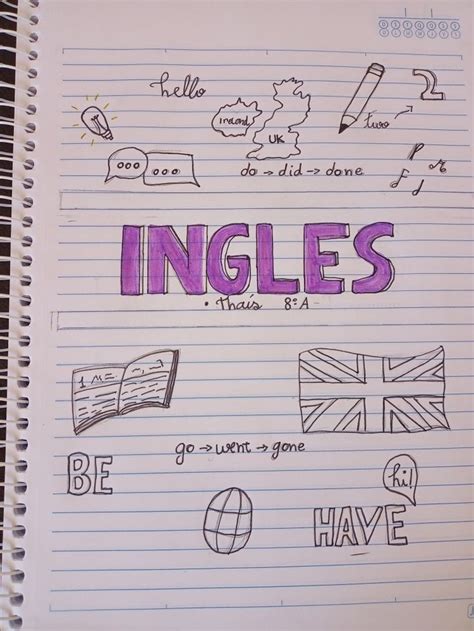 hello
2
Ireland
UK
two
do → did → done
INGLES
• Thaís 8ºA
go → went → gone
BE
hi!
HAVE